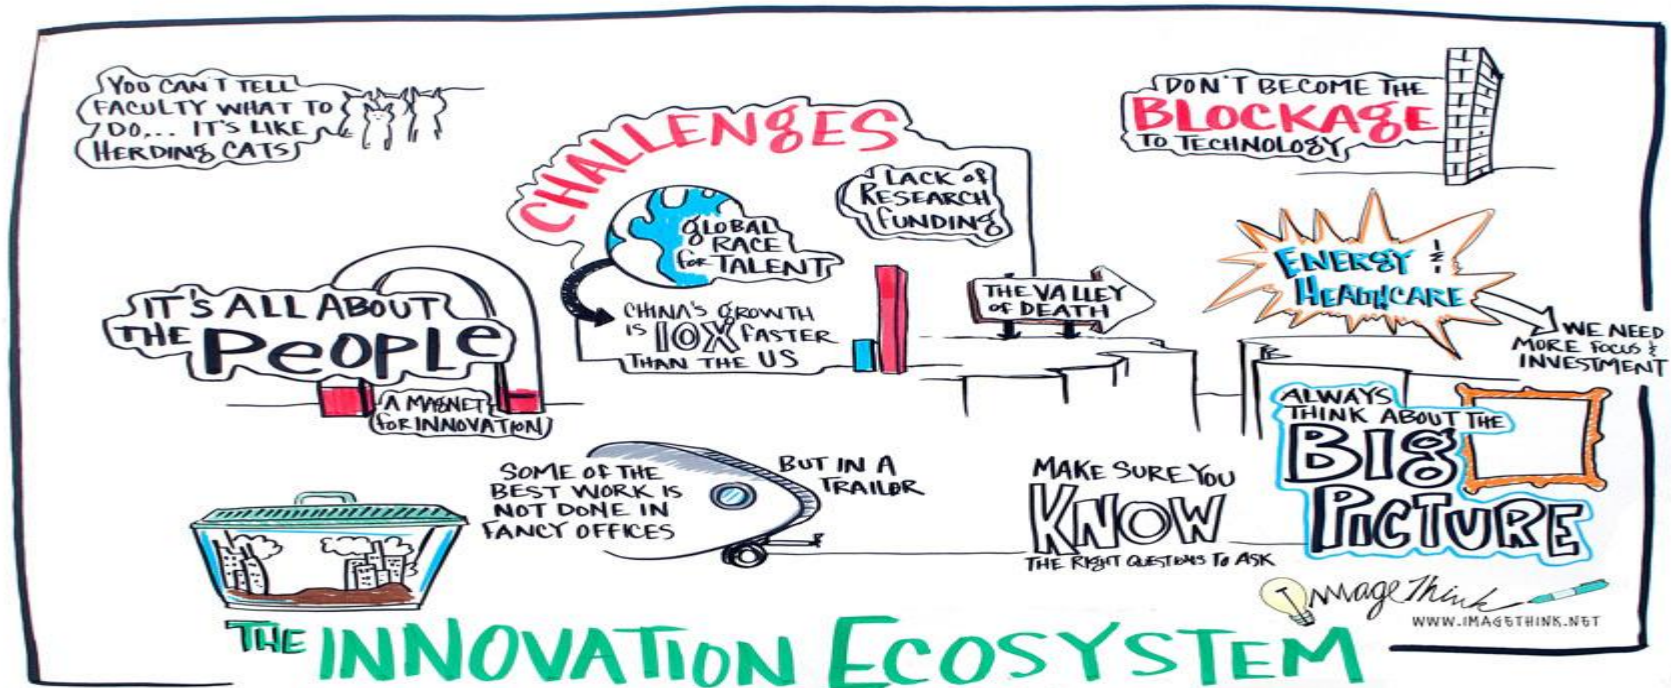 YOU CAN'T TELL
FACULTY WHAT TO
DO... IT'S LIKE
HERDING CATS
CHALLENGES
GLOBAL
RACE
for TALENT
LACK of
RESEARCH
FUNDING
CHINA'S GROWTH
IS 10X FASTER
THAN THE US
THE VALLEY
of DEATH
DON'T BECOME THE
BLOCKAGE
TO TECHNOLOGY
ENERGY &
HEALTHCARE
WE NEED
MORE FOCUS &
INVESTMENT
IT'S ALL ABOUT
THE PEOPLE
A MAGNET
for INNOVATION
SOME OF THE
BEST WORK IS
NOT DONE IN
FANCY OFFICES
BUT IN A
TRAILOR
MAKE SURE YOU
KNOW
THE RIGHT QUESTIONS TO ASK
ALWAYS
THINK ABOUT THE
BIG
PICTURE
ImageThink
WWW.IMAGETHINK.NET
THE INNOVATION ECOSYSTEM